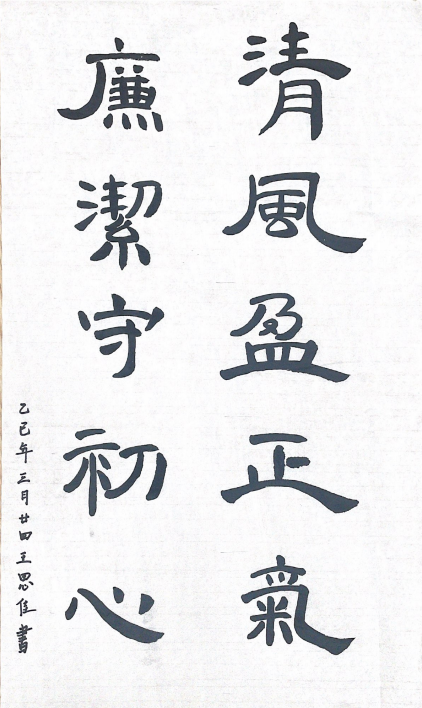 清風盈正氣
廉潔守初心
乙巳年三月廿四王思佳書